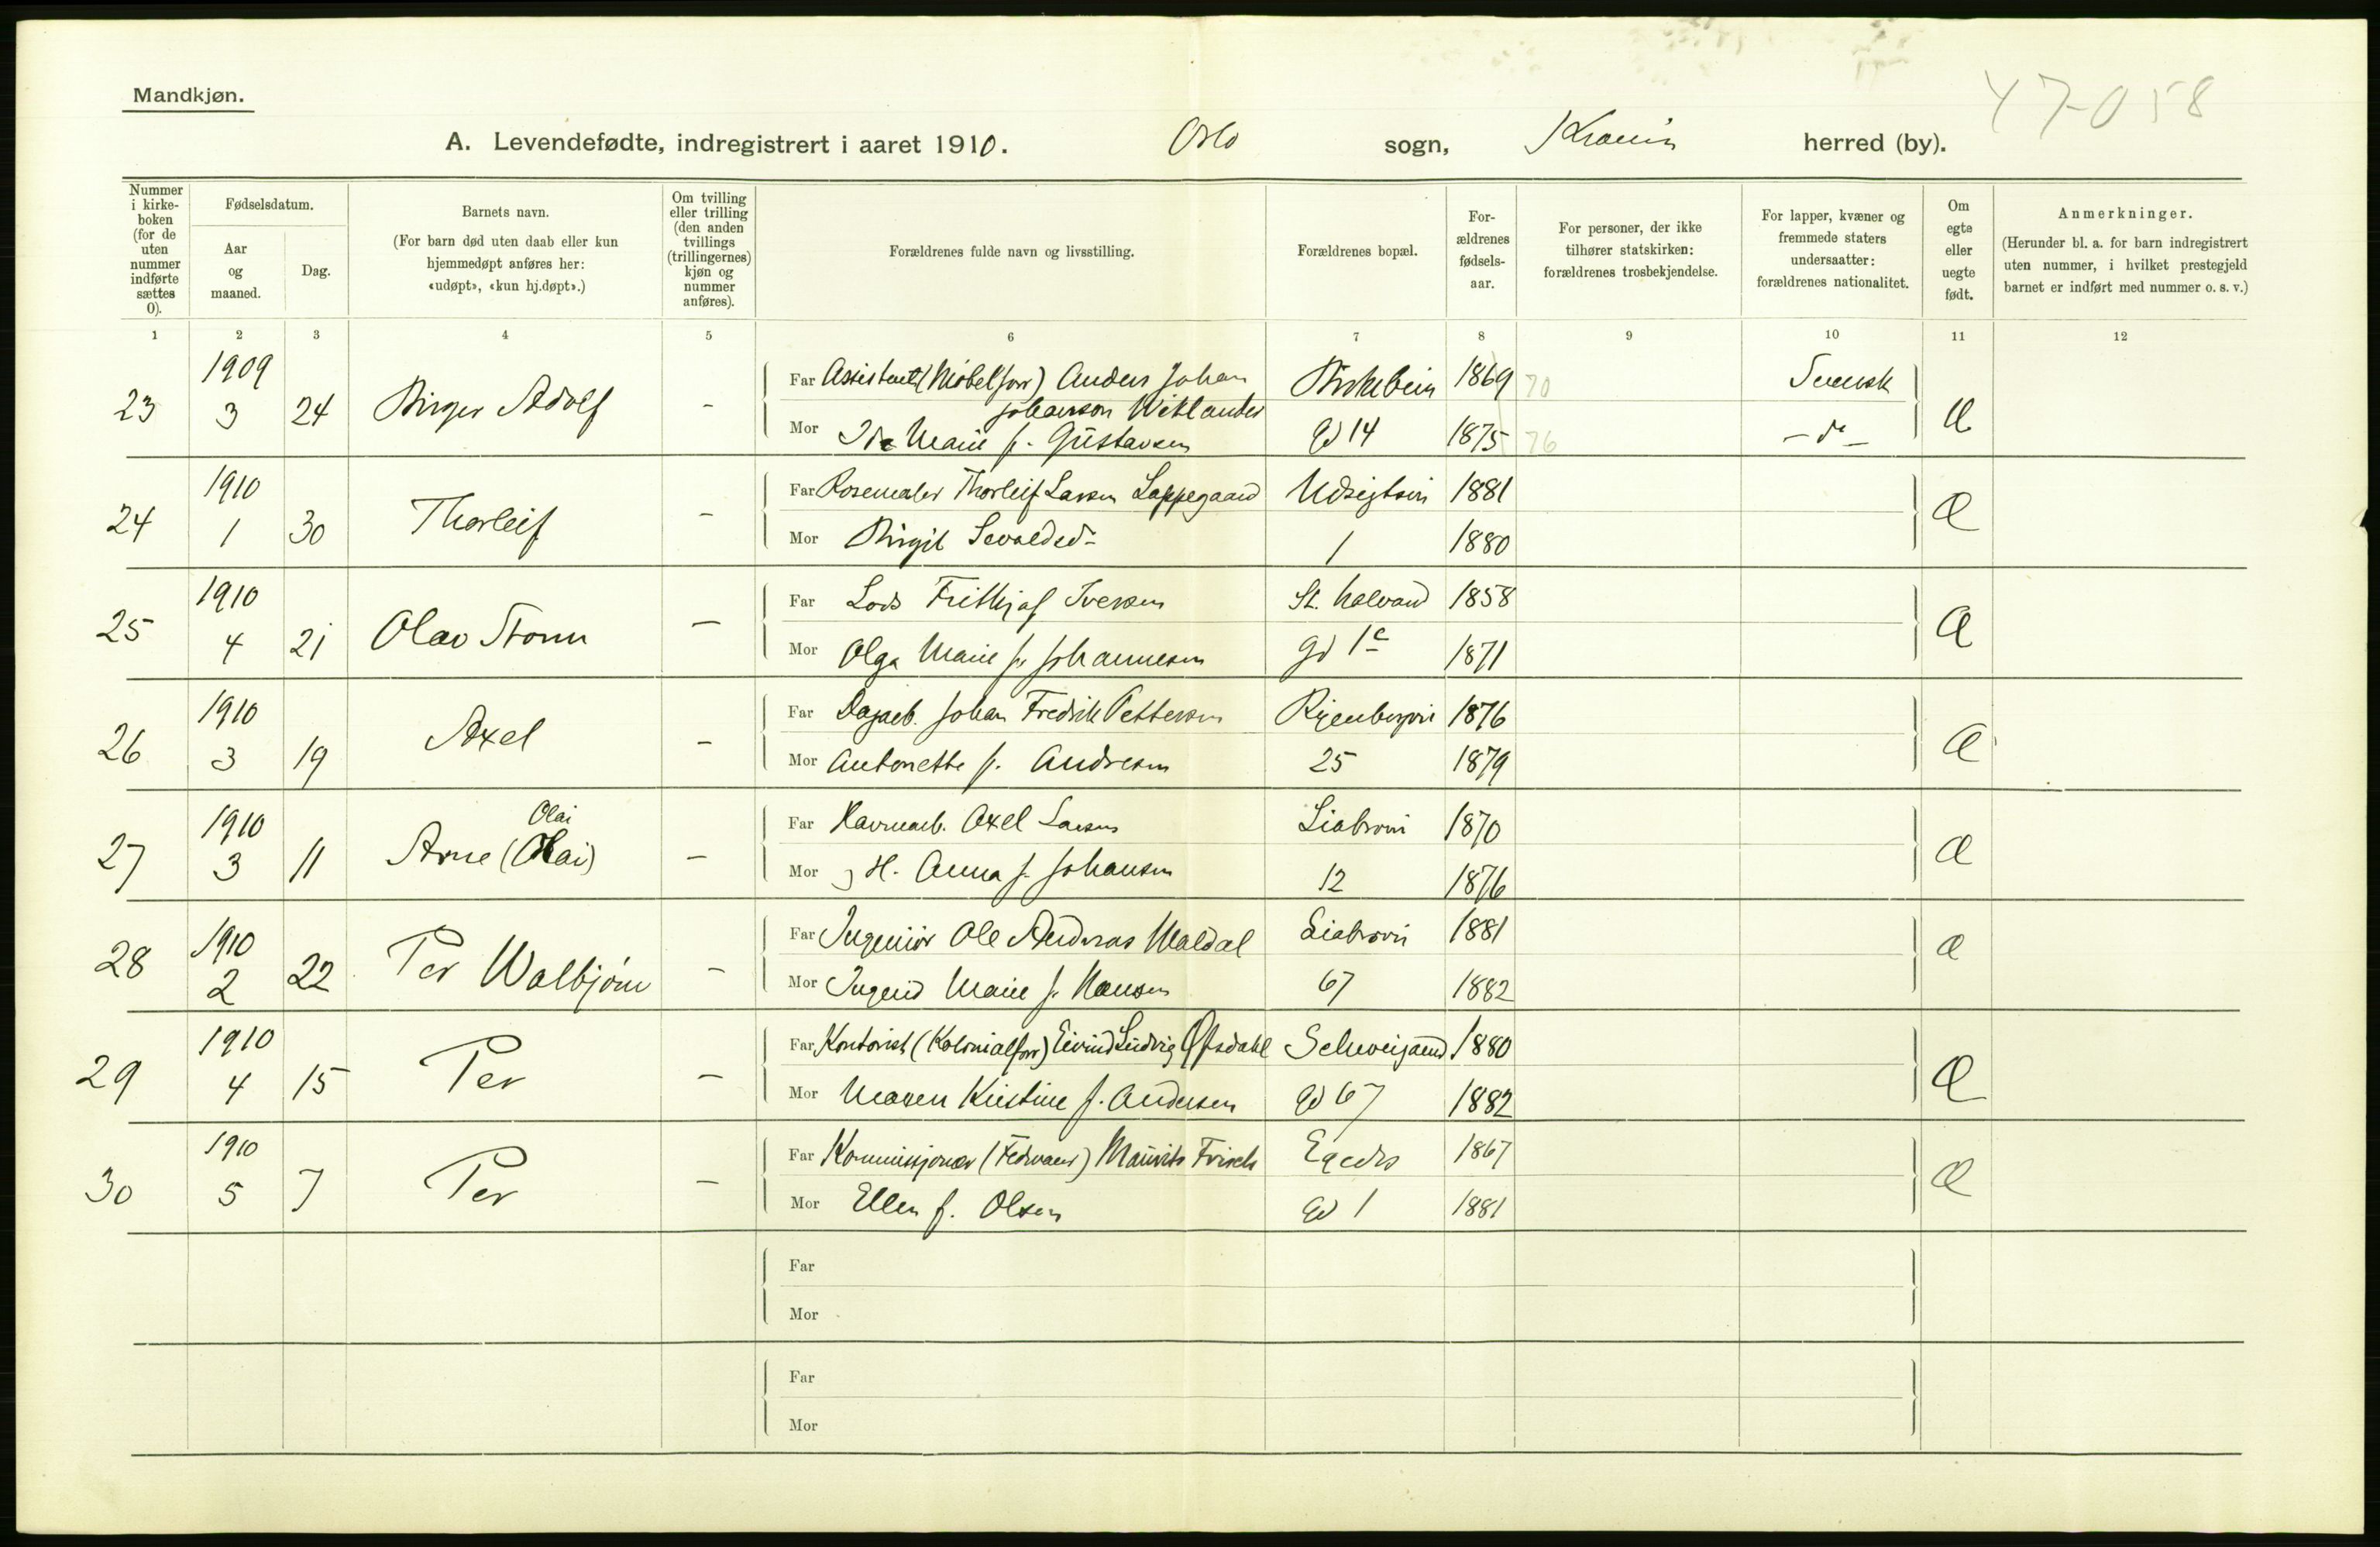 47-058
Mandkjøn.
A. Levendefødte, indregistrert i aaret 1910. Oslo sogn, Kra­nia herred (by).
Nummer i kirkeboken (for de uten nummer indførte sættes 0).
Fødselsdatum.
Aar og maaned.
Dag.
Barnets navn.
(For barn død uten daab eller kun hjemmedøpt anføres her: «udøpt», «kun hj.døpt».)
Om tvilling eller trilling (den anden tvillings (trillingernes) kjøn og nummer anføres).
Forældrenes fulde navn og livsstilling.
Forældrenes bopæl.
Forældrenes fødselsaar.
For personer, der ikke tilhører statskirken: forældrenes trosbekjendelse.
For lapper, kvæner og fremmede staters undersaatter: forældrenes nationalitet.
Om egte eller uegte født.
Anmerkninger.
(Herunder bl. a. for barn indregistrert uten nummer, i hvilket prestegjeld barnet er indført med nummer o. s. v.)
1 2 3 4 5 6 7 8 9 10 11 12
23 1909 3 24 Birger Adolf - Far Assistent (Møbelforr) Anders Johan Johanson Wiklander Birkebein 1869 70 Svensk Æ
Mor Ida Marie f. Gustavsen gd 14 1875 76 - do -
24 1910 1 30 Thorleif - Far Rosemaler Thorleif Larsen Lappegaard Udsigtsvn 1881 Æ
Mor Birgit Sevaldsd. 1 1880
25 1910 4 21 Olav Storm - Far Lods Frithjof Iversen St. Halvard 1858 Æ
Mor Olga Marie f. Johannesen gd 1c 1871
26 1910 3 19 Axel - Far Dagarb. Johan Fredrik Pettersen Ryenbergvn 1876 Æ
Mor Antonette f. Andresen 25 1879
27 1910 3 11 Arne (Olai) Olai - Far Havnearb. Axel Larsen Liabrovn 1870 Æ
Mor J H. Anna f. Johansen 12 1876
28 1910 2 22 Per Walbjörn - Far Ingeniør Ole Andreas Waldal Liabrovn 1881 Æ
Mor Ingrid Marie f. Hansen 67 1882
29 1910 4 15 Per - Far Kontorist (Kolonialforr) Eivind Ludvig Ofsdahl Schweigaard 1880 Æ
Mor Maren Kristine f. Andersen gd 67 1882
30 1910 5 7 Per - Far Kommissjonær (Fedevarer) Mauritz Frisch Egedes 1867 Æ
Mor Ellen f. Olsen gd 1 1881
Far
Mor
Far
Mor